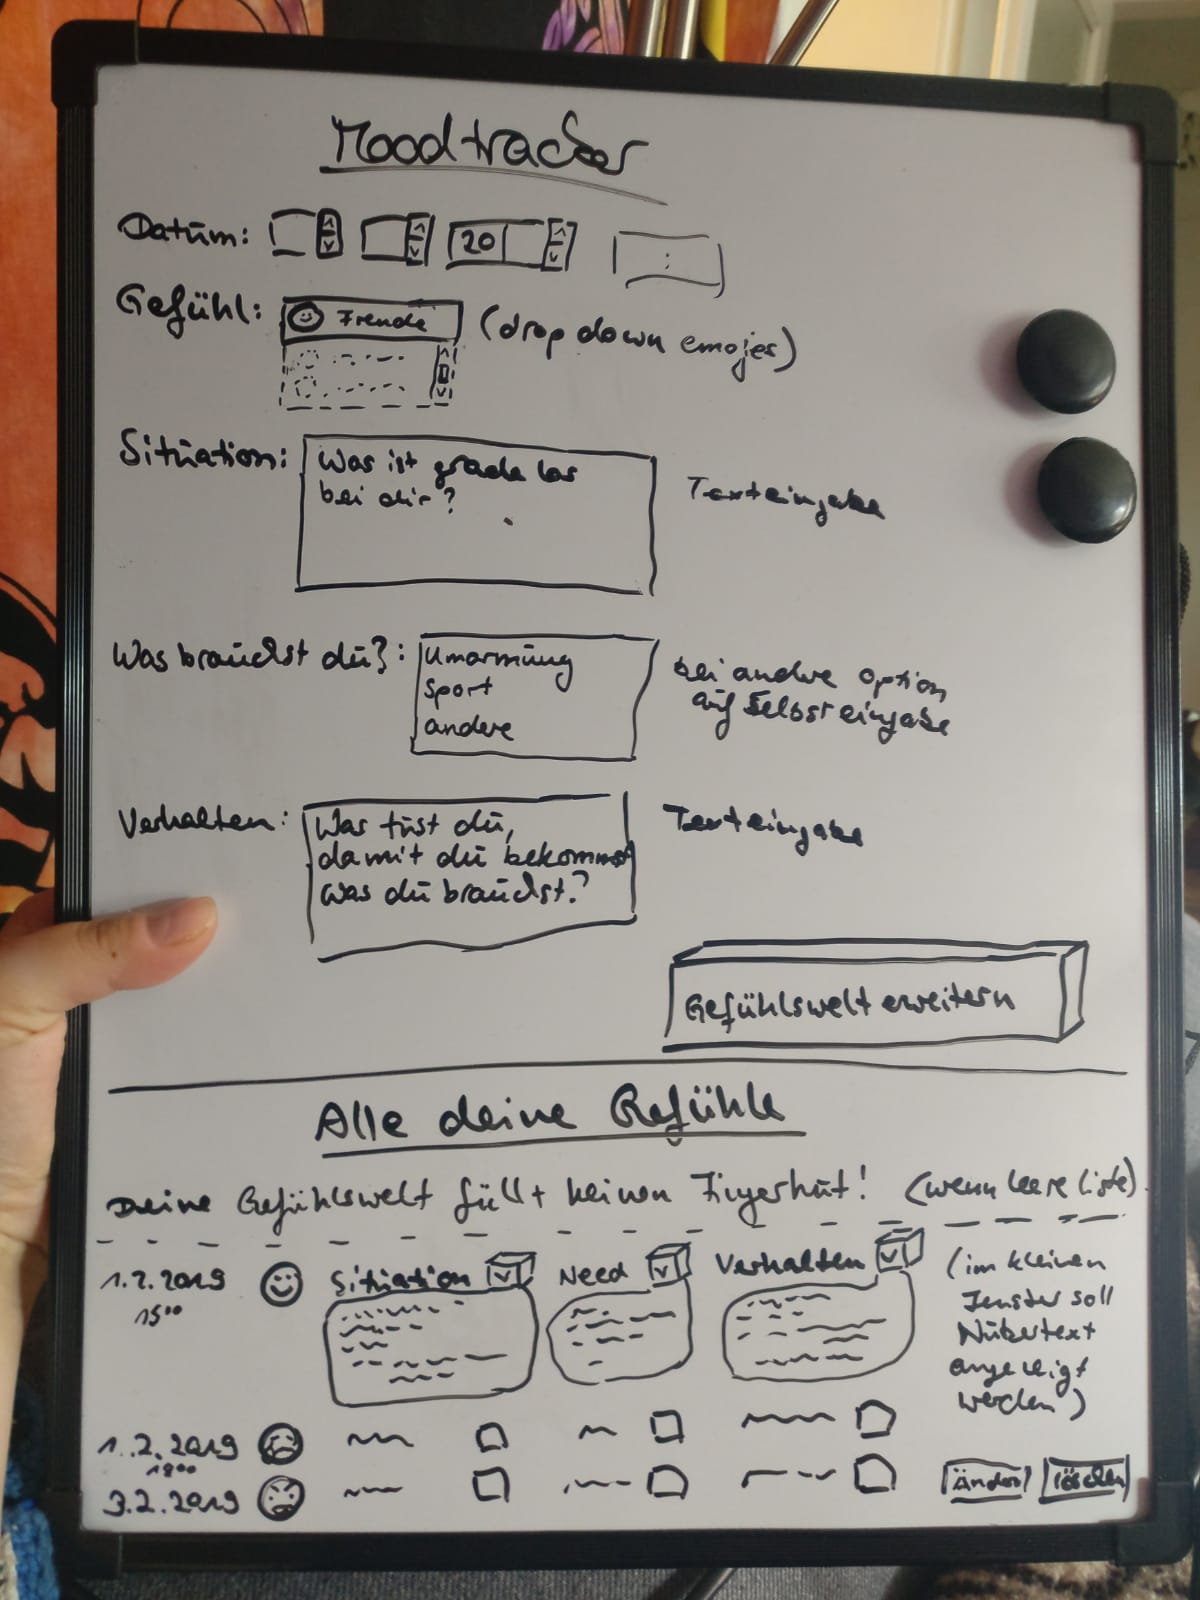 Moodtracker
Datum: 20 :
Gefühl: Freude (drop down emojies)
Situation: Was ist grade los
bei dir?
Texteingabe
Was brauchst du?: Umarmung
Sport
andere
bei andere Option
auf Selbsteingabe
Verhalten: Was tust du,
damit du bekommst
was du brauchst?
Texteingabe
Gefühlswelt erweitern
Alle deine Gefühle
Deine Gefühlswelt füllt keinen Fingerhut! (wenn leere Liste)
1.2.2019 Situation Need Verhalten
15⁰⁰
(im kleinen
Fenster soll
Nutzertext
angezeigt
werden)
1.2.2019
18⁰⁰
3.2.2019 Ändern löschen